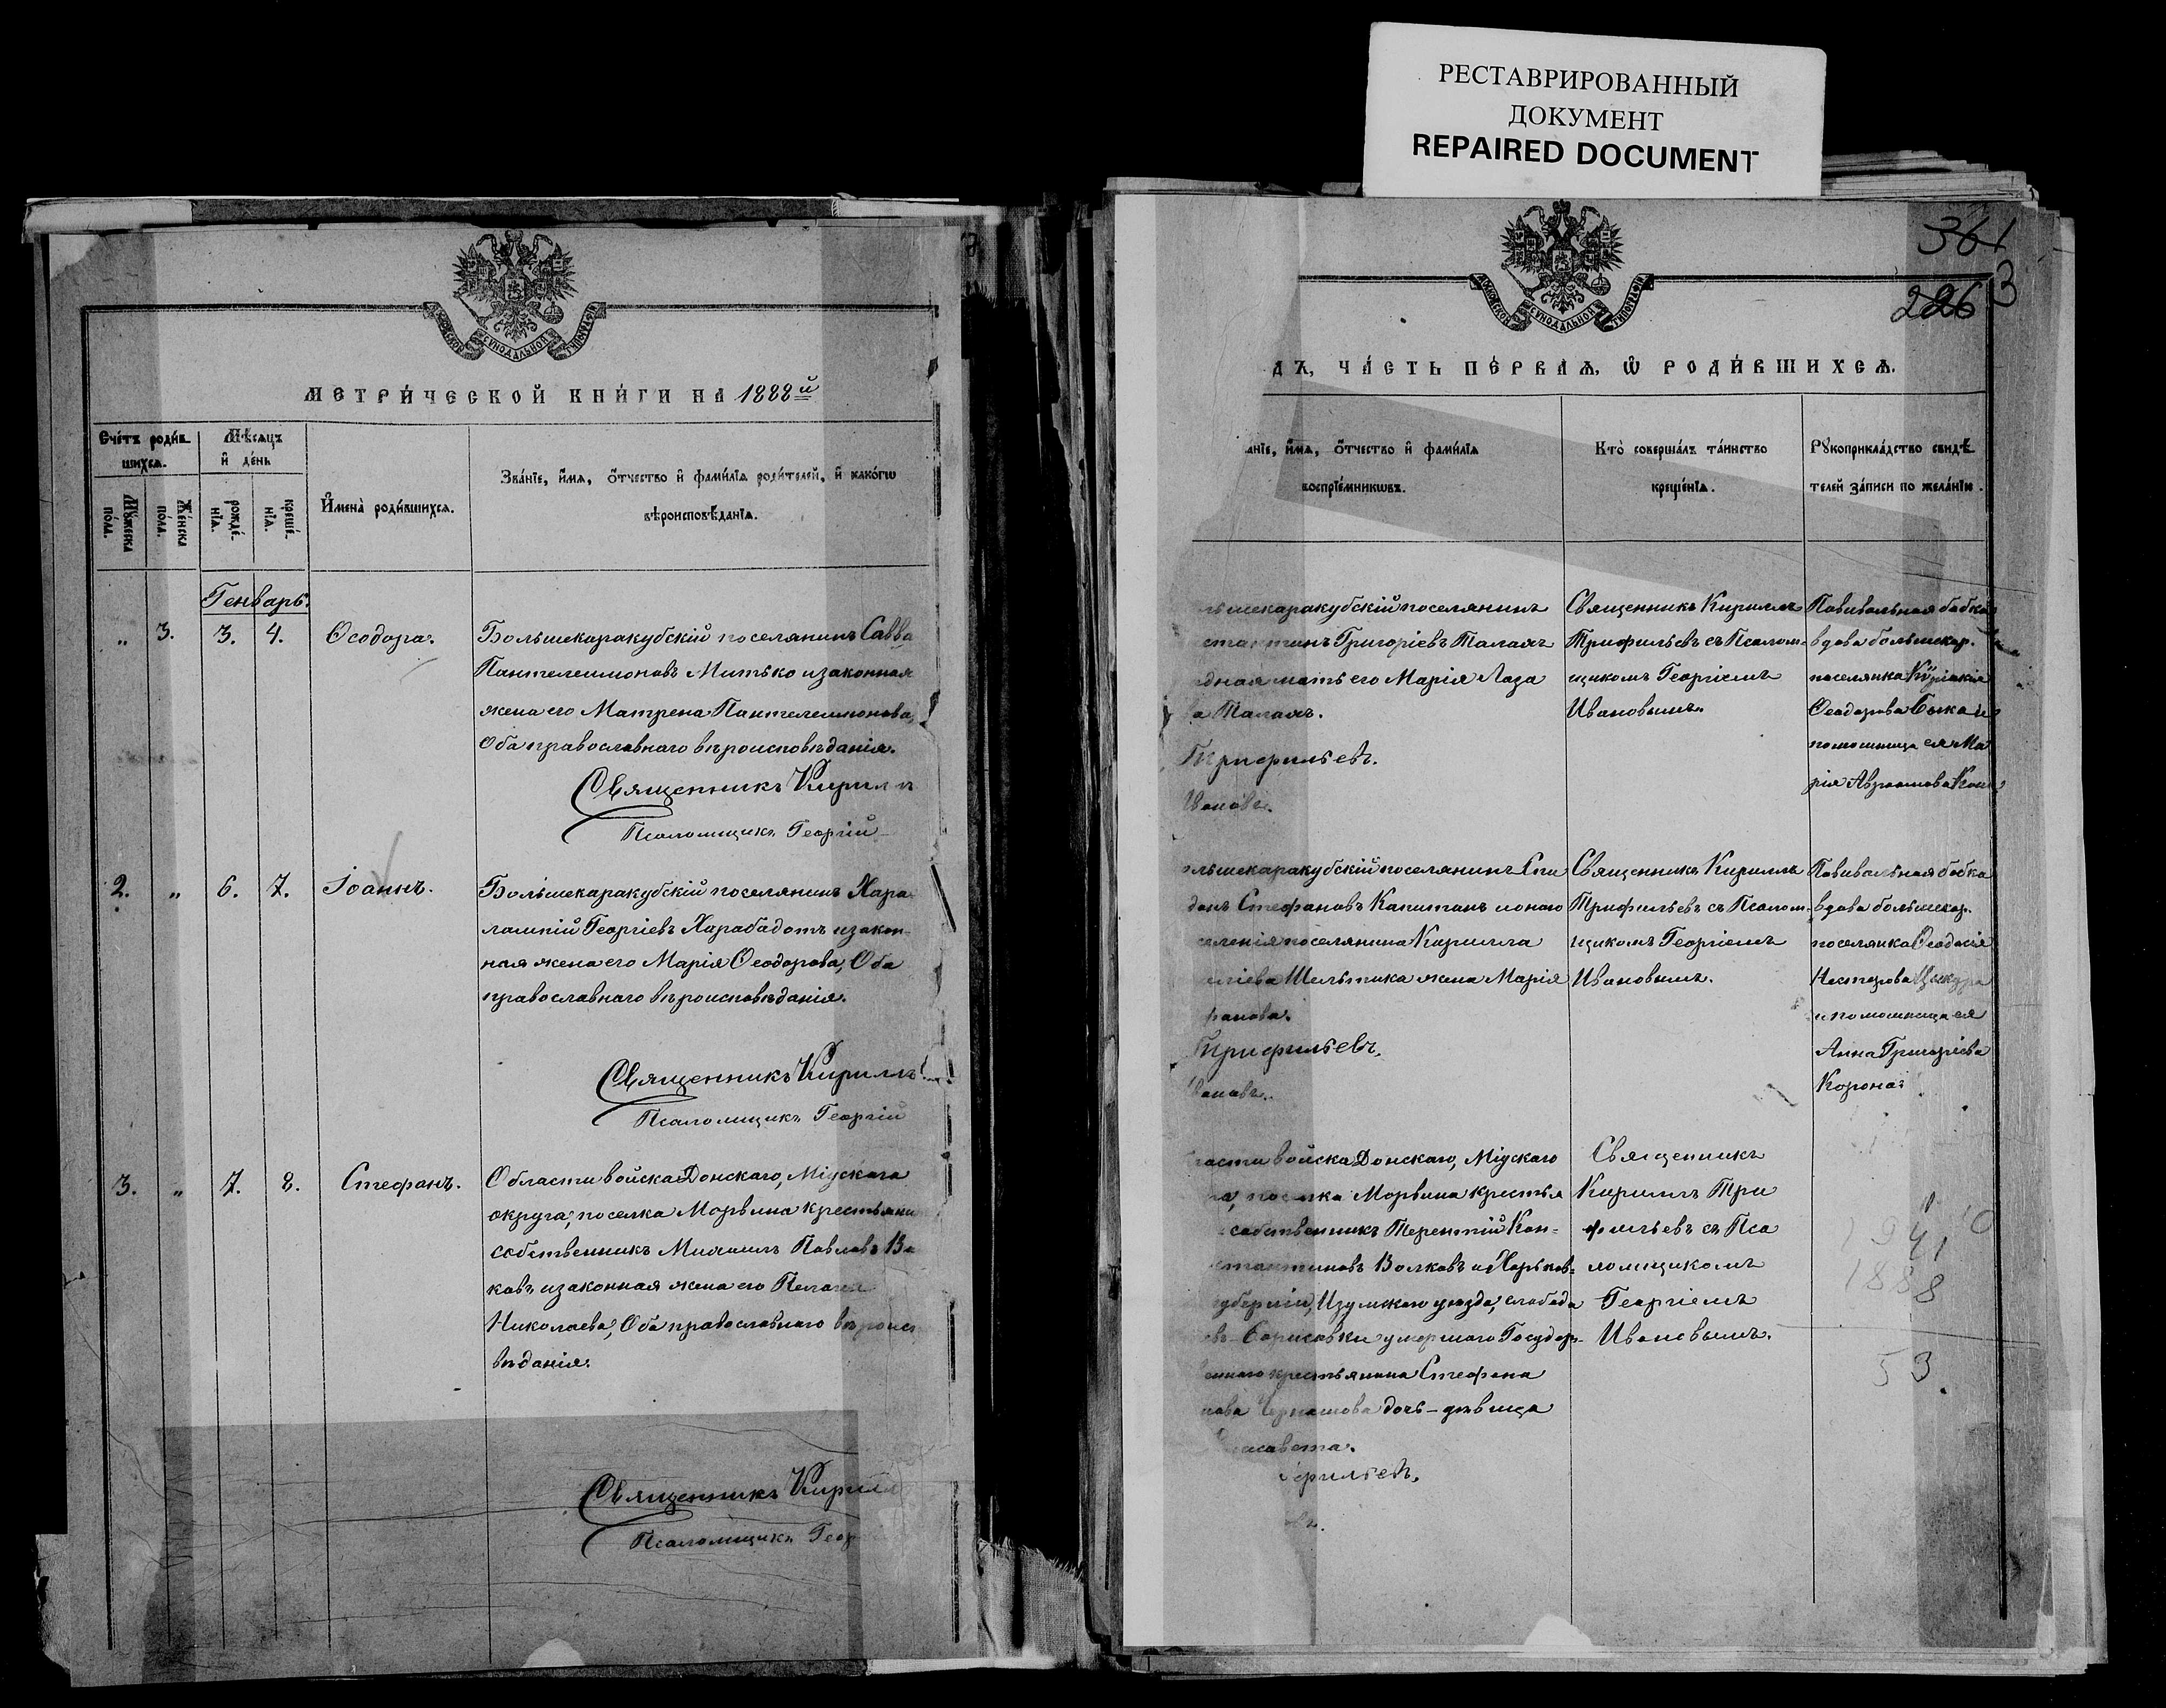 РЕСТАВРИРОВАННЫЙ
ДОКУМЕНТ
REPAIRED DOCUMENT
МОСКОВСКОЙ СѴНОДАЛЬНОЙ ТИПОГРАФІИ
МЕТРИ́ЧЕСКОЙ КНИ́ГИ НА 1888й
Сче́тъ роди́в
шихсѧ.
Мѣ́сѧцъ
и҆ де́нь
Мꙋ́жеска
по́ла.
Же́нска
по́ла.
рожде́-
нїѧ.
креще́-
нїѧ.
И҆мена̀ роди́вшихсѧ.
Зва́нїе, и҆́мѧ, ѻ҆́тчество и҆ фами́лїѧ роди́телей, и҆ како́гѡ
вѣроисповѣ́данїѧ.
Генварь.
„ 3. 3. 4. Ѳеодора.
Большекаракубскій поселянинъ Савва
Пантелеимоновъ Митько и законная
жена его Матрена Пантелеимонова,
Оба православнаго вѣроисповѣданія.
Священникъ Кирилл
Псаломщикъ Георгій
2. „ 6. 7. Іоаннъ.
Большекаракубскій поселянинъ Хара
лампій Георгіевъ Харабадотъ и закон-
ная жена его Марія Ѳеодорова, Оба
православнаго вѣроисповѣданія.
Священникъ Кириллъ
Псаломщикъ Георгій
3. „ 7. 8. Стефанъ.
Области войска Донскаго, Міускаго
округа, поселка Морвина крестьянин
собственникъ Михаилъ Павловъ Во
ковъ и законная жена его Пелагея
Николаева, Оба православнаго вѣроисп
вѣданія.
Священникъ Кирилл
Псаломщикъ Геор
361
226 3
МОСКОВСКОЙ СѴНОДАЛЬНОЙ ТИПОГРАФІИ
ДЪ, ЧА́СТЬ ПЕ́РВАѦ, Ѡ҆ РОДИ́ВШИХСѦ.
а́нїе, и҆́мѧ, ѻ҆́тчество и҆ фами́лїѧ
воспрїе́мникѡвъ.
Кто̀ соверша́лъ та́инство
креще́нїѧ.
Рꙋкоприкла́дство свидѣ́
телей за́писи по жела́нїю.
льшекаракубскій поселянинъ
стантинъ Григоріевъ Талахъ
дная мать его Марія Лаза
ва Талахъ.
Трифильевъ.
Ивановъ.
Священникъ Кириллъ
Трифильевъ съ Псалом-
щикомъ Георгіемъ
Ивановымъ.
Повивальная бабка
вдова большекар.
поселянка Кѵріакія
Ѳеодорова
помошница ея Ма
рія
ольшекаракубскій поселянинъ Спи
донъ Стефановъ Капитанъ и онаго
селенія поселянина Кирилла
жена Марія
фанова.
Трифильевъ.
Ивановъ.
Священникъ Кириллъ
Трифильевъ съ Псалом-
щикомъ Георгіемъ
Ивановымъ.
Повивальная бабка
вдова большекар.
поселянка Ѳеодосія
Нестерова
и помошница ея
Анна Григоріева
Корона
ласти войска Донскаго, Міускаго
га, поселка Морвина крестья
собственникъ Терентій Кон-
стантиновъ Волковъ и Харьков-
губерніи, Изумскаго уѣзда, слобода
Борисовки умершаго Государ-
еннаго крестьянина Стефана
дочь-дѣвица
Елисавета.
Трифильевъ.
Священникъ
Кириллъ Три
фильевъ съ Пса
ломщикомъ
Георгіемъ
Ивановымъ.
1941
1888
53